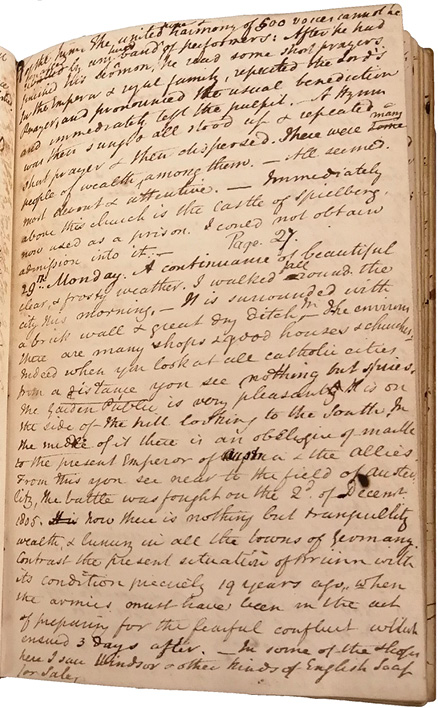 the tune. The united harmony of 500 voices cannot be
equalled by any band of performers: After he had
finished his sermon, he read some short prayers
for the Emperor & royal family, repeated the Lord's
Prayer, and pronounced the usual benediction
and immediately left the pulpit. — A Hymn
was then sung & all stood up & repeated a
short prayer & then dispersed. There were many
people of wealth among them. — All seemed
most devout & attentive. — Immediately
above this church is the castle of Spielberg
now used as a prison. I could not obtain
admission into it. —
Page 27.
29th Monday. A continuance of beautiful
clear & frosty weather. I walked all round the
city this morning. — It is surrounded with
a brick wall & great dry ditch. — In the environs
there are many shops & good houses & churches.
Indeed when you look at all catholic cities
from a distance you see nothing but spires.
The Garden Public is very pleasant. It is on
the side of the hill looking to the South. In
the middle of it there is an obelisque of marble
to the present Emperor of Austria & the Allies.
From this you see near to the field of Auster
litz, the battle was fought on the 2d. of Decemr
1805. Now there is nothing but tranquillity
wealth, & luxury in all the towns of Germany
Contrast the present situation of Brunn with
its condition precisely 19 years ago, when
the armies must have been in the act
of preparing for the fearful conflict which
ensued 3 days after. — In some of the shops
here I saw Windsor & other kinds of English Soap
for Sale.